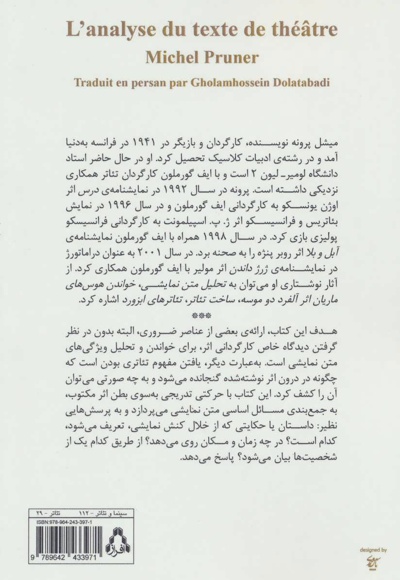 L'analyse du texte de théâtre
Michel Pruner
Traduit en persan par Gholamhossein Dolatabadi
میشل پرونه نویسنده، کارگردان و بازیگر در ۱۹۴۱ در فرانسه به‌دنیا
آمد و در رشته‌ی ادبیات کلاسیک تحصیل کرد. او در حال حاضر استاد
دانشگاه لومیر-لیون ۲ است و با ایف گورملون کارگردان تئاتر همکاری
نزدیکی داشته است. پرونه در سال ۱۹۹۲ در نمایشنامه‌ی درس اثر
اوژن یونسکو به کارگردانی ایف گورملون و در سال ۱۹۹۶ در نمایش
بئاتریس و فرانسیسکو اثر ژ. پ. اسپیلمونت به کارگردانی فرانسیسکو
پولیزی بازی کرد. در سال ۱۹۹۸ همراه با ایف گورملون نمایشنامه‌ی
آبل و بلا اثر روبر پنژه را به صحنه برد. در سال ۲۰۰۱ به عنوان دراماتورژ
در نمایشنامه‌ی ژرژ داندن اثر مولیر با ایف گورملون همکاری کرد. از
آثار نوشتاری او می‌توان به تحلیل متن نمایشی، خواندن هوس‌های
ماریان اثر آلفرد دو موسه، ساخت تئاتر، تئاترهای ابزورد اشاره کرد.
***
هدف این کتاب، ارائه‌ی بعضی از عناصر ضروری، البته بدون در نظر
گرفتن دیدگاه خاص کارگردانی اثر، برای خواندن و تحلیل ویژگی‌های
متن نمایشی است. به‌عبارت دیگر، یافتن مفهوم تئاتری بودن است که
چگونه در درون اثر نوشته‌شده گنجانده می‌شود و به چه صورتی می‌توان
آن را کشف کرد. این کتاب با حرکتی تدریجی به‌سوی بطن اثر مکتوب،
به جمع‌بندی مسائل اساسی متن نمایشی می‌پردازد و به پرسش‌هایی
نظیر: داستان یا حکایتی که از خلال کنش نمایشی، تعریف می‌شود،
کدام است؟ در چه زمان و مکان روی می‌دهد؟ از طریق کدام یک از
شخصیت‌ها بیان می‌شود؟ پاسخ می‌دهد.
سینما و تئاتر - ۱۱۲
تئاتر - ۲۹
ISBN: 978-964-243-397-1
9 789642 433971
افراز
designed by